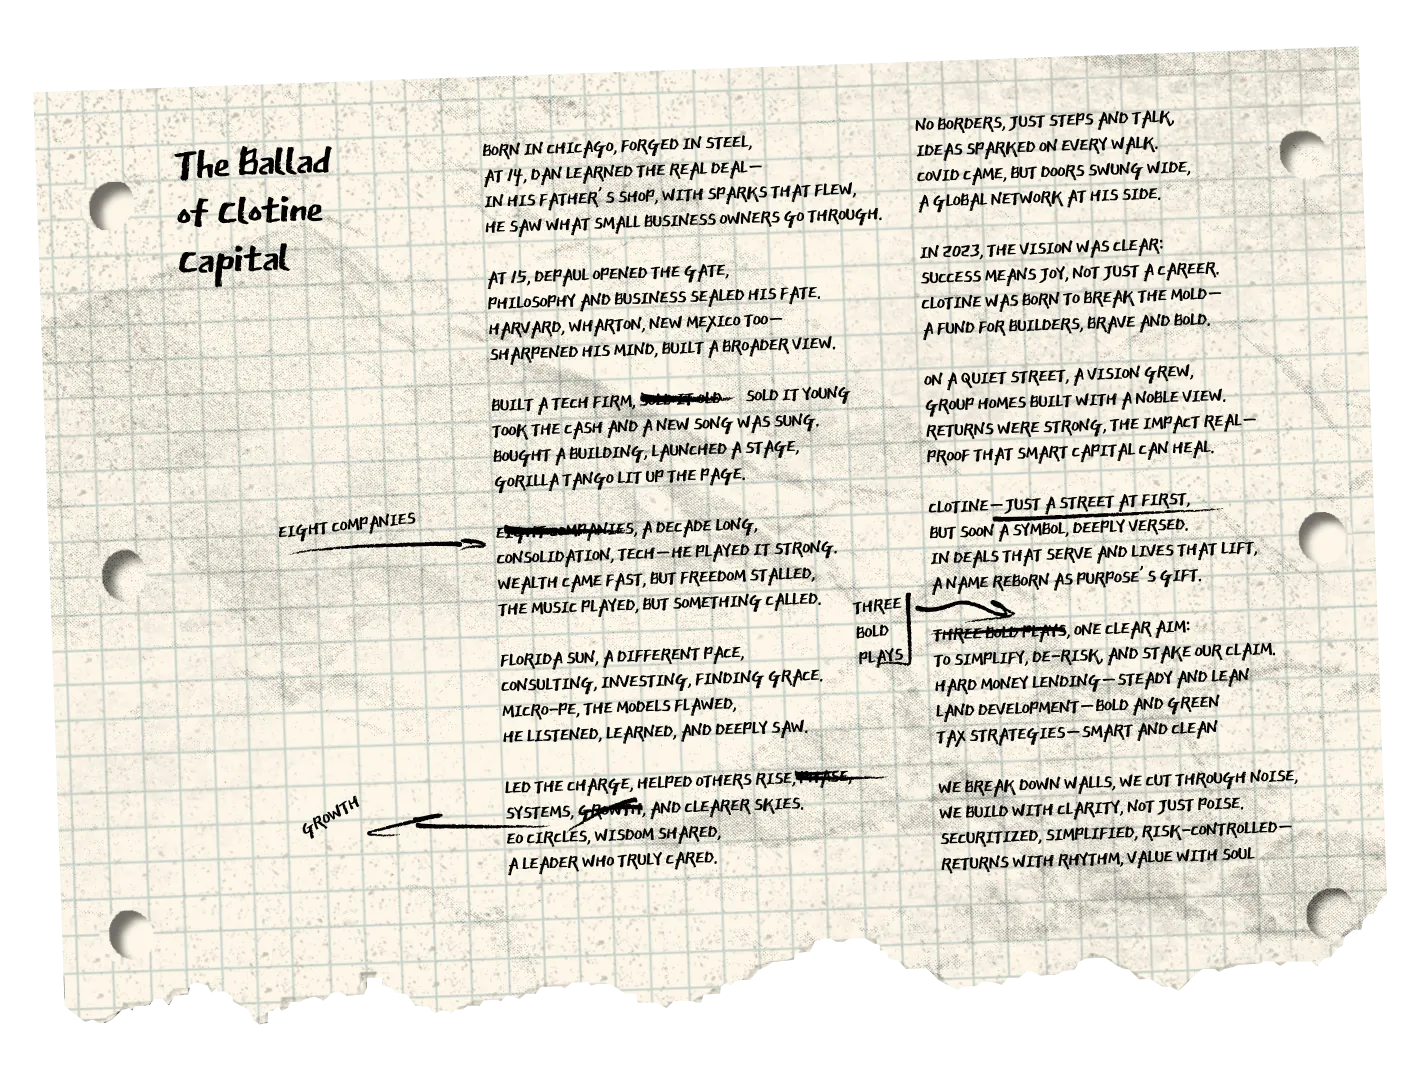 The Ballad
of Clotine
Capital
BORN IN CHICAGO, FORGED IN STEEL,
AT 14, DAN LEARNED THE REAL DEAL—
IN HIS FATHER'S SHOP, WITH SPARKS THAT FLEW,
HE SAW WHAT SMALL BUSINESS OWNERS GO THROUGH.
AT 15, DEPAUL OPENED THE GATE,
PHILOSOPHY AND BUSINESS SEALED HIS FATE.
HARVARD, WHARTON, NEW MEXICO TOO—
SHARPENED HIS MIND, BUILT A BROADER VIEW.
BUILT A TECH FIRM, SOLD IT OLD SOLD IT YOUNG
TOOK THE CASH AND A NEW SONG WAS SUNG.
BOUGHT A BUILDING, LAUNCHED A STAGE,
GORILLA TANGO LIT UP THE PAGE.
EIGHT COMPANIES
EIGHT COMPANIES, A DECADE LONG,
CONSOLIDATION, TECH—HE PLAYED IT STRONG.
WEALTH CAME FAST, BUT FREEDOM STALLED,
THE MUSIC PLAYED, BUT SOMETHING CALLED.
FLORIDA SUN, A DIFFERENT PACE,
CONSULTING, INVESTING, FINDING GRACE.
MICRO-PE, THE MODELS FLAWED,
HE LISTENED, LEARNED, AND DEEPLY SAW.
LED THE CHARGE, HELPED OTHERS RISE, PHASE,
SYSTEMS, GROWTH, AND CLEARER SKIES.
GROWTH
EO CIRCLES, WISDOM SHARED,
A LEADER WHO TRULY CARED.
NO BORDERS, JUST STEPS AND TALK,
IDEAS SPARKED ON EVERY WALK.
COVID CAME, BUT DOORS SWUNG WIDE,
A GLOBAL NETWORK AT HIS SIDE.
IN 2023, THE VISION WAS CLEAR:
SUCCESS MEANS JOY, NOT JUST A CAREER.
CLOTINE WAS BORN TO BREAK THE MOLD—
A FUND FOR BUILDERS, BRAVE AND BOLD.
ON A QUIET STREET, A VISION GREW,
GROUP HOMES BUILT WITH A NOBLE VIEW.
RETURNS WERE STRONG, THE IMPACT REAL—
PROOF THAT SMART CAPITAL CAN HEAL.
CLOTINE—JUST A STREET AT FIRST,
BUT SOON A SYMBOL, DEEPLY VERSED.
IN DEALS THAT SERVE AND LIVES THAT LIFT,
A NAME REBORN AS PURPOSE'S GIFT.
THREE
BOLD
PLAYS
THREE BOLD PLAYS, ONE CLEAR AIM:
TO SIMPLIFY, DE-RISK, AND STAKE OUR CLAIM.
HARD MONEY LENDING—STEADY AND LEAN
LAND DEVELOPMENT—BOLD AND GREEN
TAX STRATEGIES—SMART AND CLEAN
WE BREAK DOWN WALLS, WE CUT THROUGH NOISE,
WE BUILD WITH CLARITY, NOT JUST POISE.
SECURITIZED, SIMPLIFIED, RISK-CONTROLLED—
RETURNS WITH RHYTHM, VALUE WITH SOUL